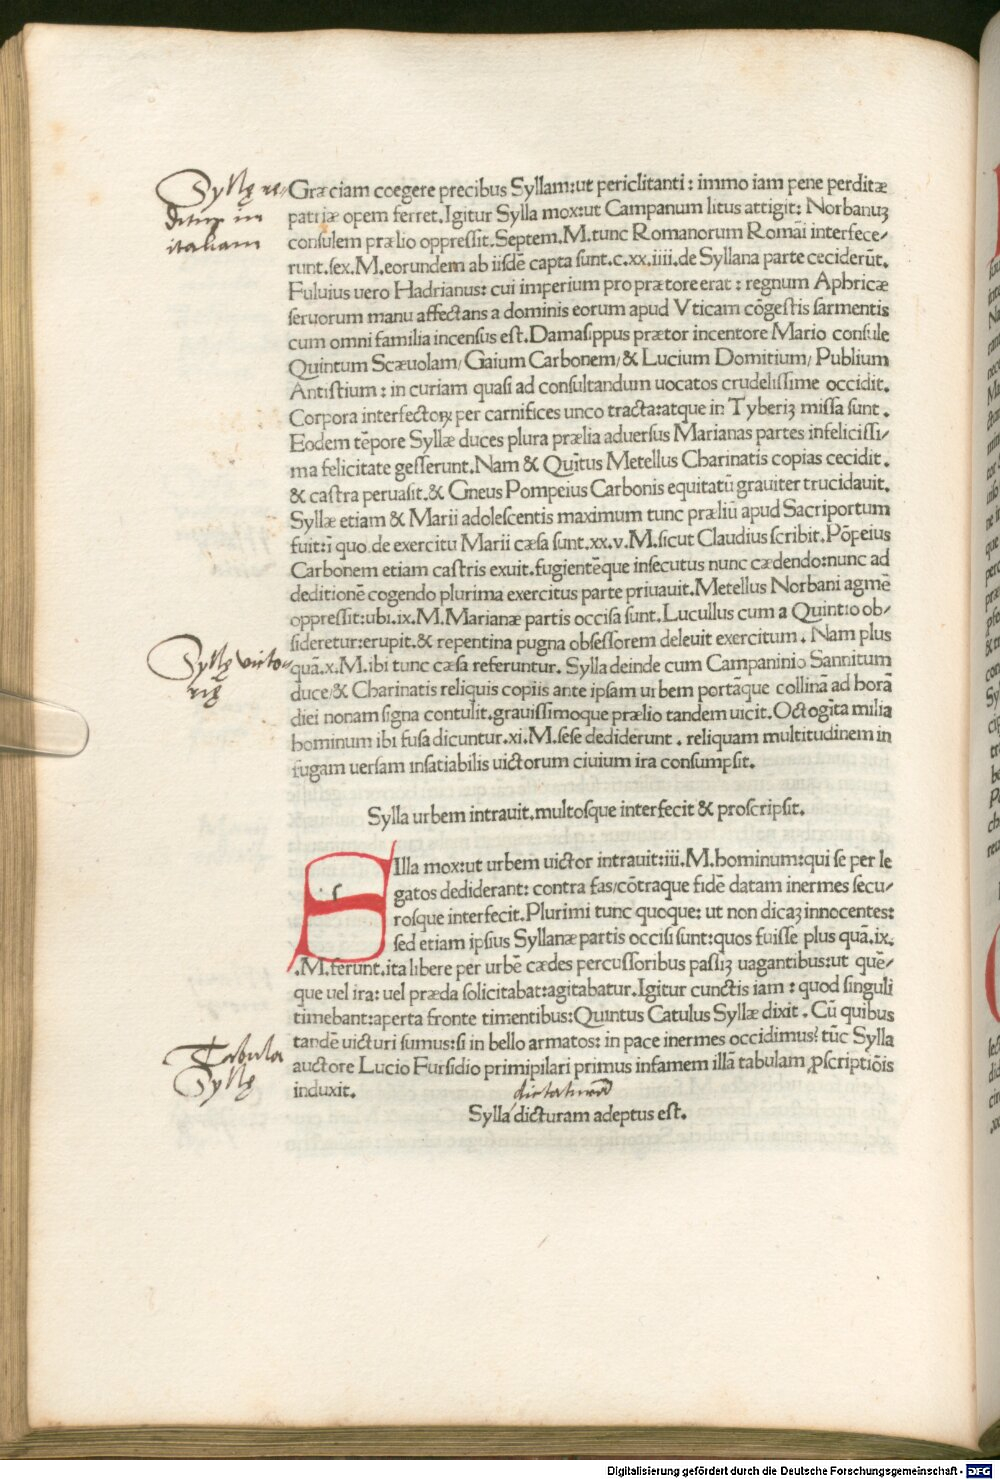 Syllę re-
ditus in
italiam
Græciam coegere precibus Syllam:ut periclitanti: immo iam pene perditæ
patriæ opem ferret.Igitur Sylla mox:ut Campanum litus attigit: Norbanuꝫ
consulem prælio oppressit.Septem.M.tunc Romanorum Romāi interfece/
runt.sex.M.eorundem ab iisdē capta sunt.c.xx.iiii.de Syllana parte ceciderūt.
Fuluius uero Hadrianus: cui imperium pro prætore erat: regnum Aphricæ
seruorum manu affectans a dominis eorum apud Vticam cōgestis sarmentis
cum omni familia incensus est.Damasippus prætor incentore Mario consule
Quintum Scæuolam/Gaium Carbonem/& Lucium Domitium/Publium
Antistium: in curiam quasi ad consultandum uocatos crudelissime occidit.
Corpora interfectoꝝ per carnifices unco tracta:atque in Tyberiꝫ missa sunt.
Eodem tēpore Syllæ duces plura prælia aduersus Marianas partes infelicissi/
ma felicitate gesserunt.Nam & Quītus Metellus Charinatis copias cecidit.
& castra peruasit.& Gneus Pompeius Carbonis equitatū grauiter trucidauit.
Syllæ etiam & Marii adolescentis maximum tunc præliū apud Sacriportum
fuit:ī quo de exercitu Marii cæsa sunt.xx.v.M.sicut Claudius scribit.Pōpeius
Carbonem etiam castris exuit.fugientēque insecutus nunc cædendo:nunc ad
deditionē cogendo plurima exercitus parte priuauit.Metellus Norbani agmē
oppressit:ubi.ix.M.Marianæ partis occisa sunt.Lucullus cum a Quintio ob/
sideretur:erupit.& repentina pugna obsessorem deleuit exercitum. Nam plus
Syllę victo-
rię
quā.x.M.ibi tunc cæsa referuntur. Sylla deinde cum Campaninio Sannitum
duce/& Charinatis reliquis copiis ante ipsam urbem portāque collinā ad horā
diei nonam signa contulit.grauissimoque prælio tandem uicit.Octogīta milia
hominum ibi fusa dicuntur.xi.M.sese dediderunt. reliquam multitudinem in
fugam uersam insatiabilis uictorum ciuium ira consumpsit.
Sylla urbem intrauit.multosque interfecit & proscripsit.
SIlla mox:ut urbem uictor intrauit:iii.M.hominum:qui se per le
gatos dediderant: contra fas/cōtraque fidē datam inermes secu/
rosque interfecit.Plurimi tunc quoque: ut non dicaꝫ innocentes:
sed etiam ipsius Syllanæ partis occisi sunt:quos fuisse plus quā.ix.
.M.ferunt.ita libere per urbē cædes percussoribus passiꝫ uagantibus:ut quē/
que uel ira: uel præda solicitabat:agitabatur.Igitur cunctis iam: quod singuli
timebant:aperta fronte timentibus:Quintus Catulus Syllæ dixit. Cū quibus
Tabula
Syllę
tandē uicturi sumus:si in bello armatos: in pace inermes occidimus? tūc Sylla
auctore Lucio Fursidio primipilari primus infamem illā tabulam ꝓscriptiōis
induxit.
dictaturam
Sylla dicturam adeptus est.
Digitalisierung gefördert durch die Deutsche Forschungsgemeinschaft - DFG